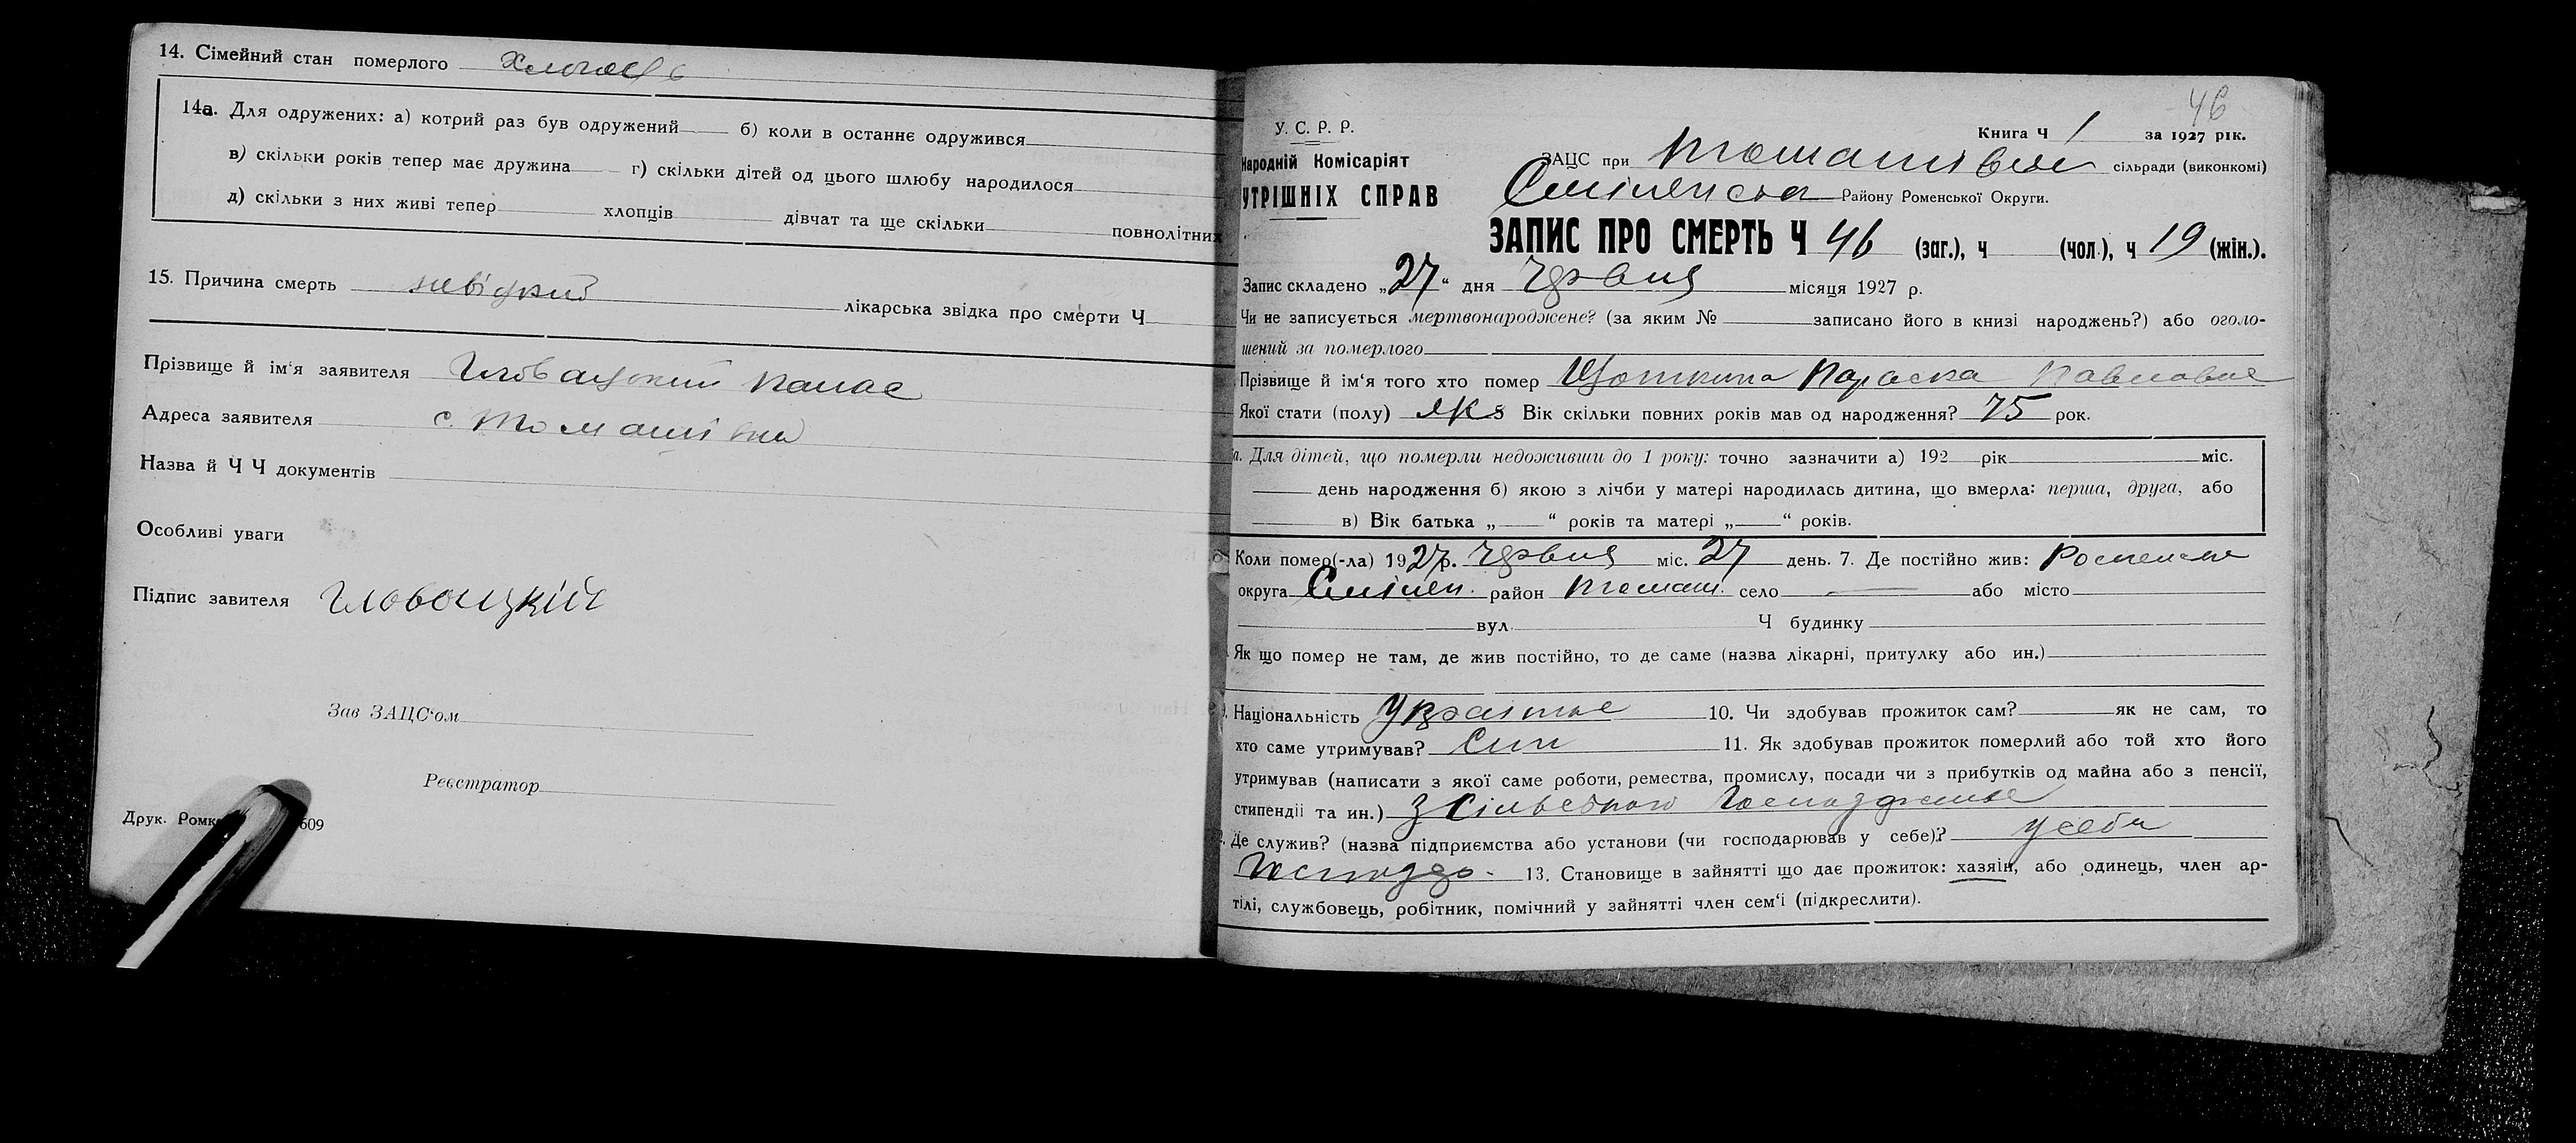 14. Сімейний стан померлого Хлопець
14а. Для одружених: а) котрий раз був одружений б) коли в останнє одружився
в) скільки років тепер має дружина г) скільки дітей од цього шлюбу народилося
д) скільки з них живі тепер хлопців дівчат та ще скільки повнолітних
15. Причина смерть невідомий лікарська звідка про смерти Ч
Прізвище й ім'я заявителя Гловацький Панас
Адреса заявителя с. Томашівка
Назва й Ч Ч документів
Особливі уваги
Підпис завителя Гловоцкий
Зав ЗАЦС'ом
Реєстратор
Друк. Ромк 609
46
У. С. Р. Р.
Народній Комісаріят
УТРІШНІХ СПРАВ
Книга Ч 1 за 1927 рік.
ЗАЦС при Томашівськ сільради (виконкомі)
Сміленська Району Роменської Округи.
ЗАПИС ПРО СМЕРТЬ Ч 46 (заг.), ч (чол.), ч 19 (жін.).
Запис складено „27“ дня Червня місяця 1927 р.
Чи не записується мертвонароджене? (за яким № записано його в книзі народжень?) або оголо-
шений за померлого
Прізвище й ім'я того хто помер Параска Павловна
Якої стати (полу) жін Вік скільки повних років мав од народження? 75 рок.
а. Для дітей, що померли недоживши до 1 року: точно зазначити а) 192 рік міс.
день народження б) якою з лічби у матері народилась дитина, що вмерла: перша, друга, або
в) Вік батька „ “ років та матері „ “ років.
Коли помер(-ла) 1927р. Червня міс. 27 день. 7. Де постійно жив: Роменськ
округа Смілен. район Томаш. село — або місто
вул. Ч будинку
Як що помер не там, де жив постійно, то де саме (назва лікарні, притулку або ин.)
Національність Українка 10. Чи здобував прожиток сам? як не сам, то
хто саме утримував? Син 11. Як здобував прожиток померлий або той хто його
утримував (написати з якої саме роботи, ремества, промислу, посади чи з прибутків од майна або з пенсії,
стипендії та ин.) З Сільського
Де служив? (назва підприємства або установи (чи господарював у себе)? у себе
13. Становище в зайнятті що дає прожиток: хазяін, або одинець, член ар-
тілі, службовець, робітник, помічний у зайнятті член сем'і (підкреслити).